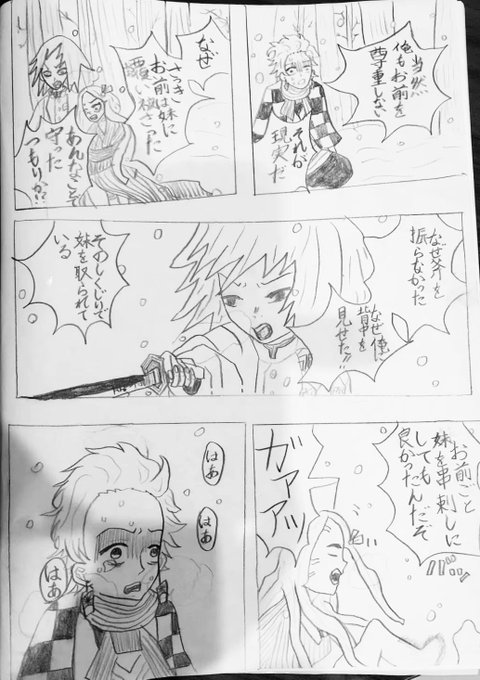 当然
俺もお前を
尊重しない
それが
現実だ
なぜ
さっき
お前は妹に
覆い被さった
あんなことで
守った
つもりか!?
なぜ斧を
振らなかった
なぜ俺に
背中を
見せた!!
そのしくじりで
妹を取られて
いる
お前ごと
妹を串刺しに
しても
良かったんだぞ
ガァァッ
はあ
はあ
はあ